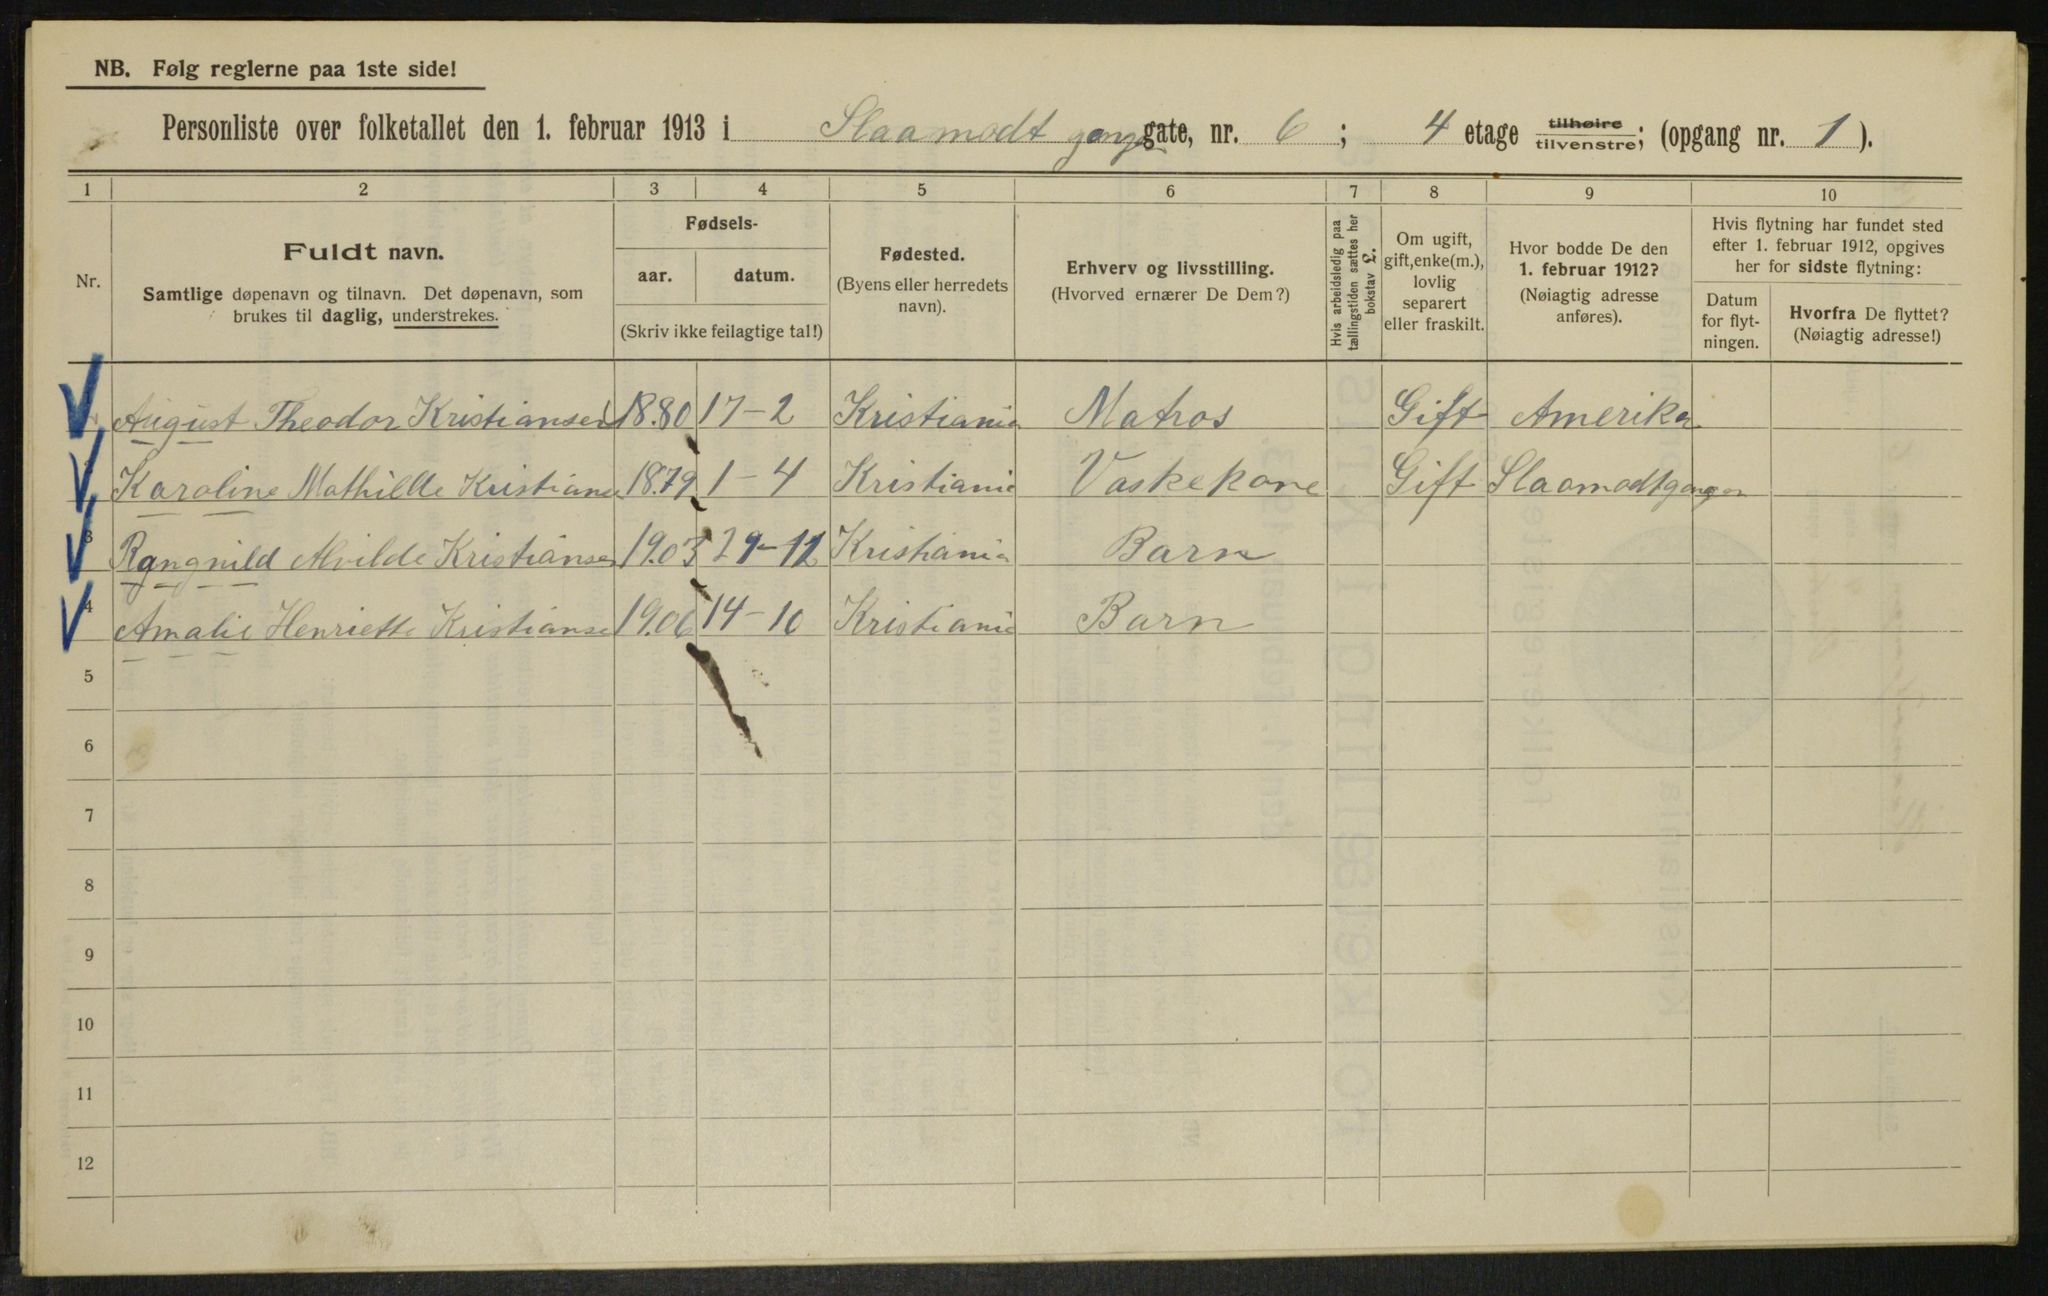 NB. Følg reglerne paa 1ste side!
Personliste over folketallet den 1. februar 1913 i Slaamodt gangen gate, nr. 6 ; 4 etage tilhøire tilvenstre; (opgang nr. 1 ).
1 2 3 4 5 6 7 8 9 10
Nr.
Fuldt navn.
Samtlige døpenavn og tilnavn. Det døpenavn, som
brukes til daglig, understrekes.
Fødsels-
aar. datum.
(Skriv ikke feilagtige tal!)
Fødested.
(Byens eller herredets
navn).
Erhverv og livsstilling.
(Hvorved ernærer De Dem?)
Hvis arbeidsledig paa
tællingstiden sættes her
bokstav £.
Om ugift,
gift, enke(m.),
lovlig
separert
eller fraskilt.
Hvor bodde De den
1. februar 1912?
(Nøiagtig adresse
anføres).
Hvis flytning har fundet sted
efter 1. februar 1912, opgives
her for sidste flytning:
Datum
for flyt-
ningen.
Hvorfra De flyttet?
(Nøiagtig adresse!)
August Theodor Kristiansen 1880 17-2 Kristiania Matros Gift Amerika
Karoline Mathilde Kristianse 1879 1-4 Kristiania Vaskekone Gift Slaamodtgangen
3 Rangnild Alvilde Kristiansen 1903 29-12 Kristiania Barn
4 Amalie Henriette Kristianse 1906 14-10 Kristiania Barn
5
6
7
8
9
10
11
12